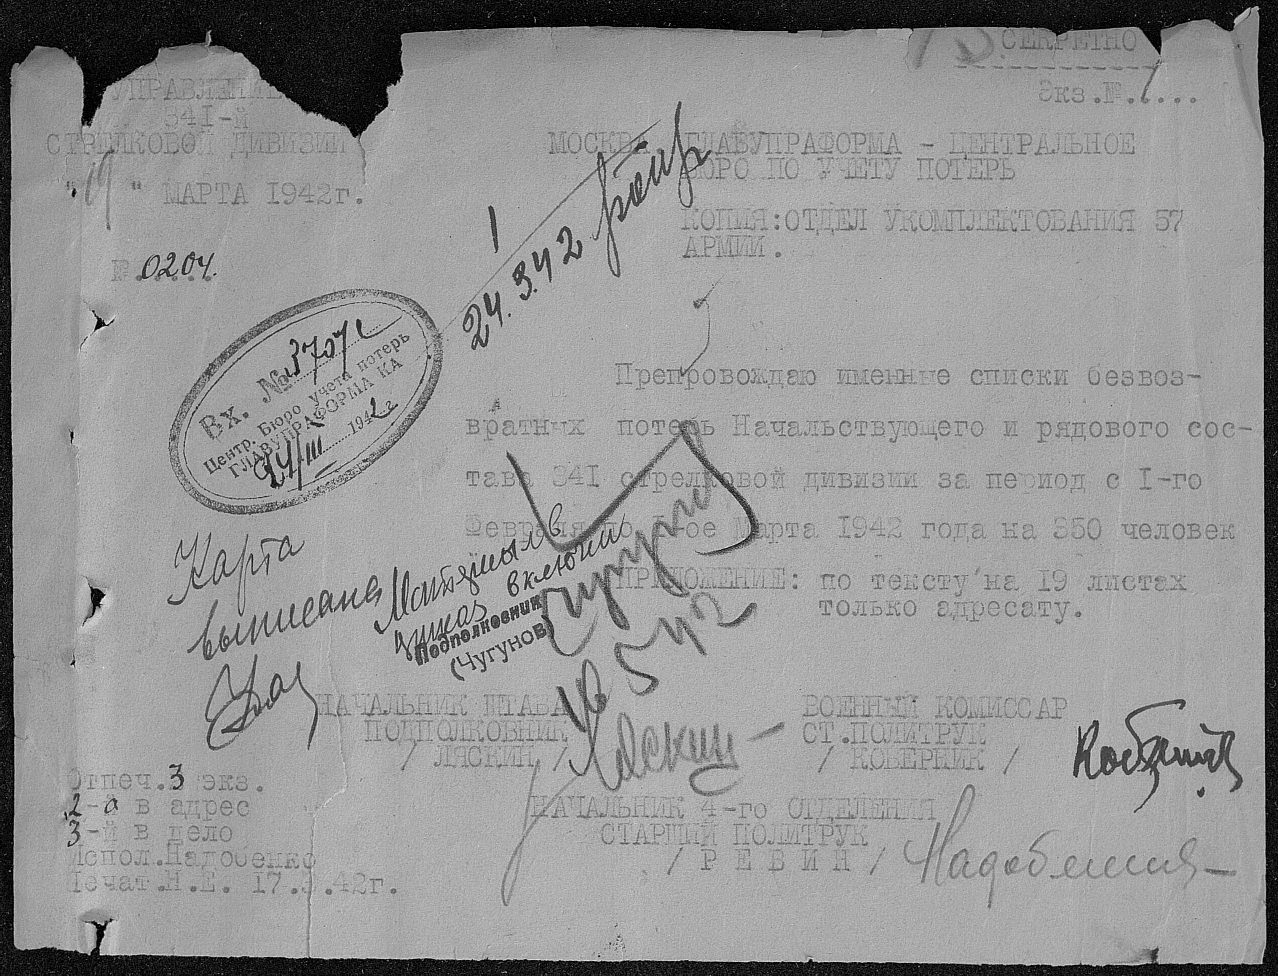 СЕКРЕТНО
Экз.№.1...
УПРАВЛЕНИЕ
341-й
СТРЕЛКОВОЙ ДИВИЗИИ
"19" МАРТА 1942г.
№.0204.
МОСКВА, ГЛАВУПРАФОРМА - ЦЕНТРАЛЬНОЕ
БЮРО ПО УЧЕТУ ПОТЕРЬ
КОПИЯ:ОТДЕЛ УКОМПЛЕКТОВАНИЯ 57
АРМИИ.
1
24.3.42
Вх. №3707с
Центр. Бюро учета потерь
ГЛАВУПРАФОРМА КА
24/III 1942г
Препровождаю именные списки безвоз-
вратных потерь Начальствующего и рядового сос-
тава 341 стрелковой дивизии за период с I-го
Февраля по I-ое Марта 1942 года на 350 человек
ПРИЛОЖЕНИЕ: по тексту на 19 листах
только адресату.
Карта
выписана
включил
Подполковник
(Чугунов)
НАЧАЛЬНИК ШТАБА
ПОДПОЛКОВНИК
/ ЛЯСКИН / Ляскин
ВОЕННЫЙ КОМИССАР
СТ.ПОЛИТРУК
/ КОВЕРНИК /
НАЧАЛЬНИК 4-го ОТДЕЛЕНИЯ
СТАРШИЙ ПОЛИТРУК
/ Р Е В И Н /
Отпеч.3 экз.
2-а в адрес
3-й в дело
Испол.Надобенко
Печат.Н.Е. 17.3.42г.